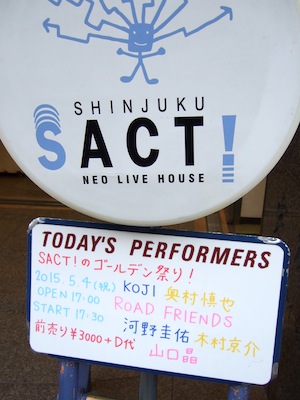 SHINJUKU
SACT!
NEO LIVE HOUSE
TODAY'S PERFORMERS
SACT!のゴールデン祭り!
2015.5.4(祝) KOJI 奥村慎也
OPEN 17:00 ROAD FRIENDS
START 17:30 河野圭佑 木村京介
前売り¥3000+D代 山口晶